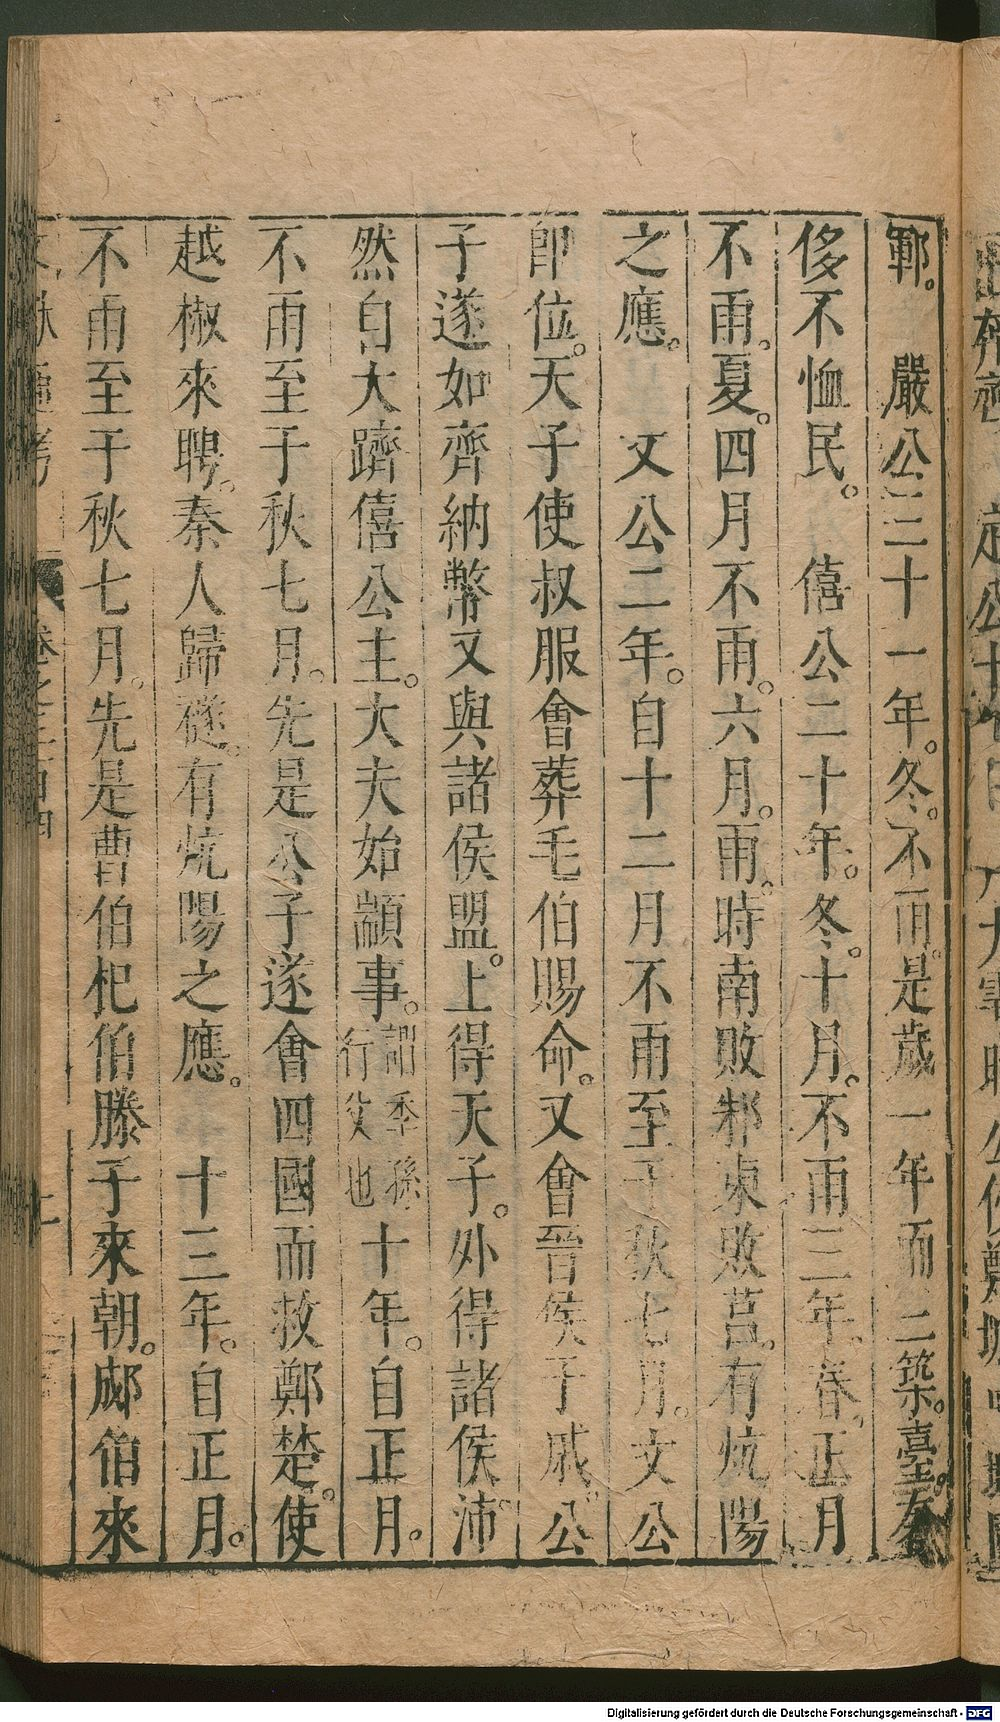 鄆。 嚴公三十一年。冬。不雨。是歲一年而三築。臺。奢
侈不恤民。 僖公二十年。冬。十月。不雨三年。春。正月
不雨。夏。四月不雨。六月。雨。時南敗邾東敗莒。有炕陽
之應。 文公二年。自十二月不雨至于秋七月。文公
即位。天子使叔服會葬毛伯賜命。又會晉侯于戚。公
子遂如齊納幣又與諸侯盟。上得天子。外得諸侯。沛
然自大躋僖公主。大夫始顓事。謂季孫行父也 十年。自正月。
不雨至于秋七月。先是公子遂會四國而救鄭楚。使
越椒來聘。秦人歸襚。有炕陽之應。 十三年。自正月。
不雨至于秋七月。先是曹伯杞伯滕子來朝。郕伯來
卷之三百四